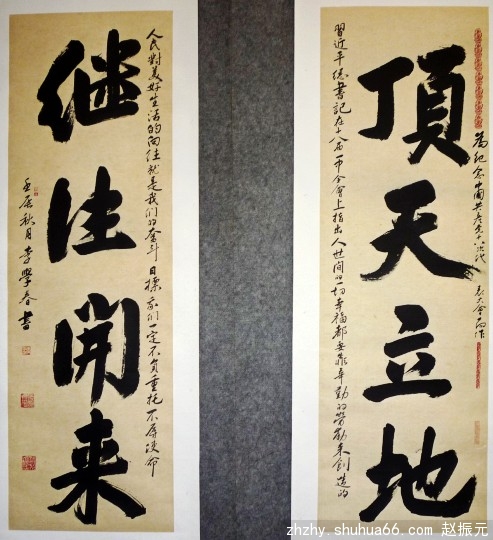 為紀念中國共產党十八次代表大會而作
頂天立地
習近平總書記在十八届一中全會上指出人世間的一切幸福都要靠辛勤的勞動来創造的
人民對美好生活的向往就是我们的奋斗目標我们一定不負重托不辱使命
继往開来
壬辰秋月李學春書
zhzhy.shuhua66.com 赵振元